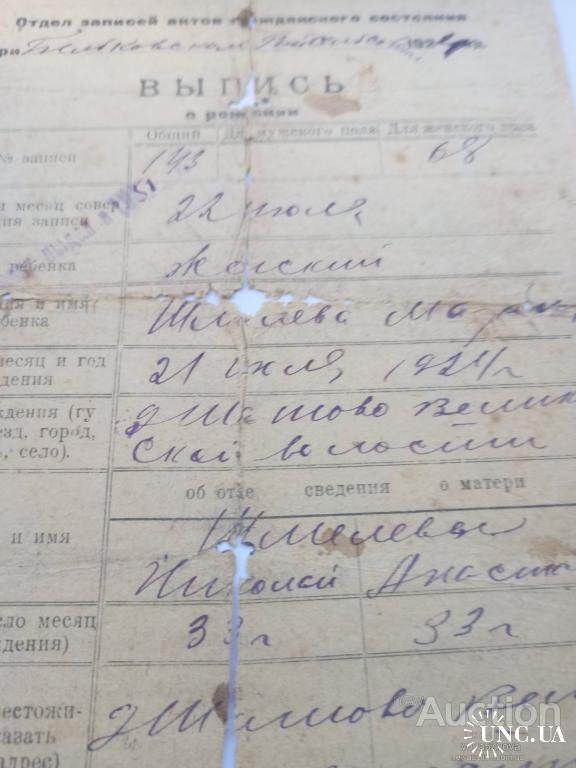 Отдел записей актов гражданского состояния
ри 192
ВЫПИСЬ
о рождении
Общий Для мужского пола Для женского пола
№ записи 143 68
и месяц совер
ия записи 22 июля
ребенка Женский
ия и имя
бенка Шмелева
месяц и год
дения 21 июля 1924 г
ждения (гу
езд, город,
ь, село). Велик
ской волости
об отце сведения о матери
и имя Шмелевы
Николай Анаст
ло месяц
ждения) 33 г 33 г
естожи-
казать
адрес)
Auction
UNC.UA